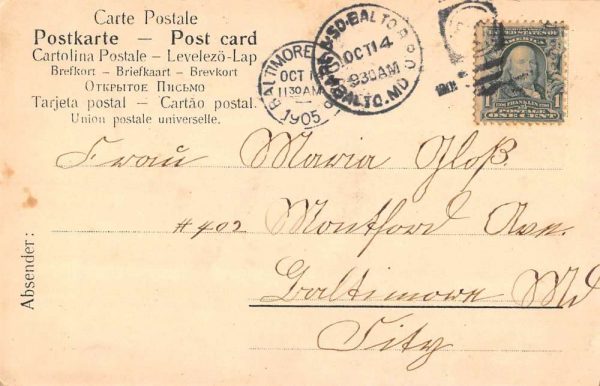 Carte Postale
Postkarte — Post card
Cartolina Postale – Levelező-Lap
Brefkort – Briefkaart – Brevkort
Открытое Письмо
Tarjeta postal – Cartão postal.
Union postale universelle.
BALTIMORE
OCT 14
1130AM
1905
& SO. BALTO. R.P.O.
OCT 14
930AM
BALTO. MD
UNITED STATES OF AMERICA
FRANKLIN
POSTAGE
ONE CENT
Frau Maria Gloß
#402 Montford Ave.
Baltimore Md
City
Absender: